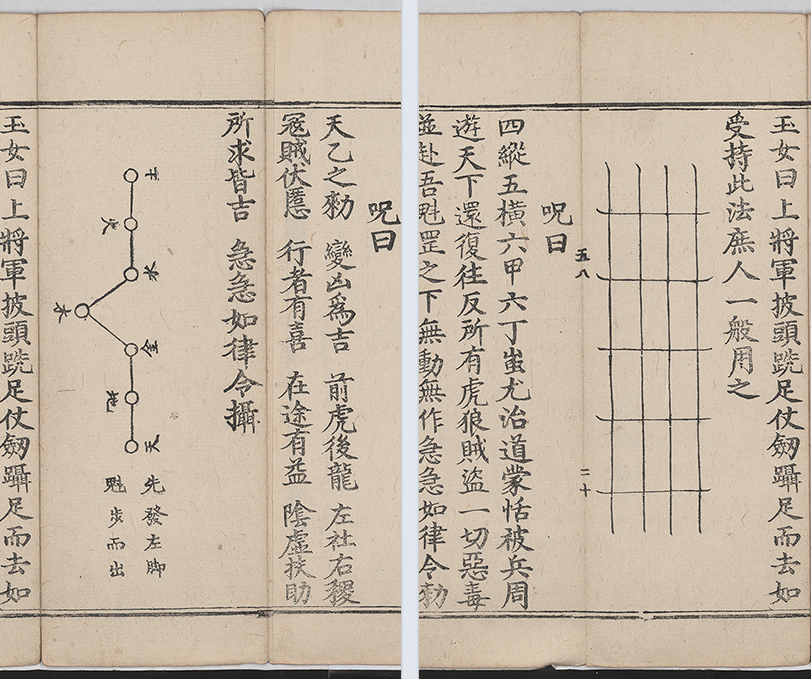 呪曰
天乙之勑 變凶爲吉 前虎後龍 左社右稷
冦賊伏慝 行者有喜 在途有益 陰虛扶助
所求皆吉 急急如律令攝
土
火
水
木
金
地
天
先發左脚
魁步而出
玉女曰上將軍披頭跣足仗劔躡足而去如
玉女曰上將軍披頭跣足仗劔躡足而去如
受持此法庶人一般用之
五八
二十
呪曰
四縱五橫六甲六丁蚩尤治道蒙恬被兵周
遊天下還復往反所有虎狼賊盜一切惡毒
並赴吾魁罡之下無動無作急急如律令勑